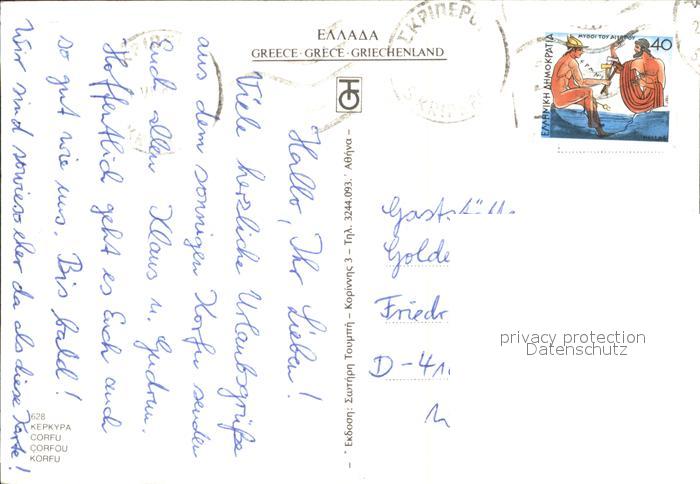 ΕΛΛΑΔΑ
GREECE · GRÈCE · GRIECHENLAND
Hallo, Ihr Lieben!
Viele herzliche Urlaubsgrüße
aus dem sonnigen Korfu senden
Euch allen Klaus u. Gudrun.
Hoffentlich geht es Euch auch
so gut wie uns. Bis bald!
Wir sind sowieso eher da als diese Karte!
628
ΚΕΡΚΥΡΑ
CORFU
CORFOU
KORFU
Έκδοση: Σωτήρη Τουμπή – Κορίννης 3 – Τηλ. 3244.093. Αθήνα –
ΕΛΛΗΝΙΚΗ ΔΗΜΟΚΡΑΤΙΑ
ΜΥΘΟΙ ΤΟΥ ΑΙΣΩΠΟΥ
40
Golde
Friedr
D-41
privacy protection
Datenschutz